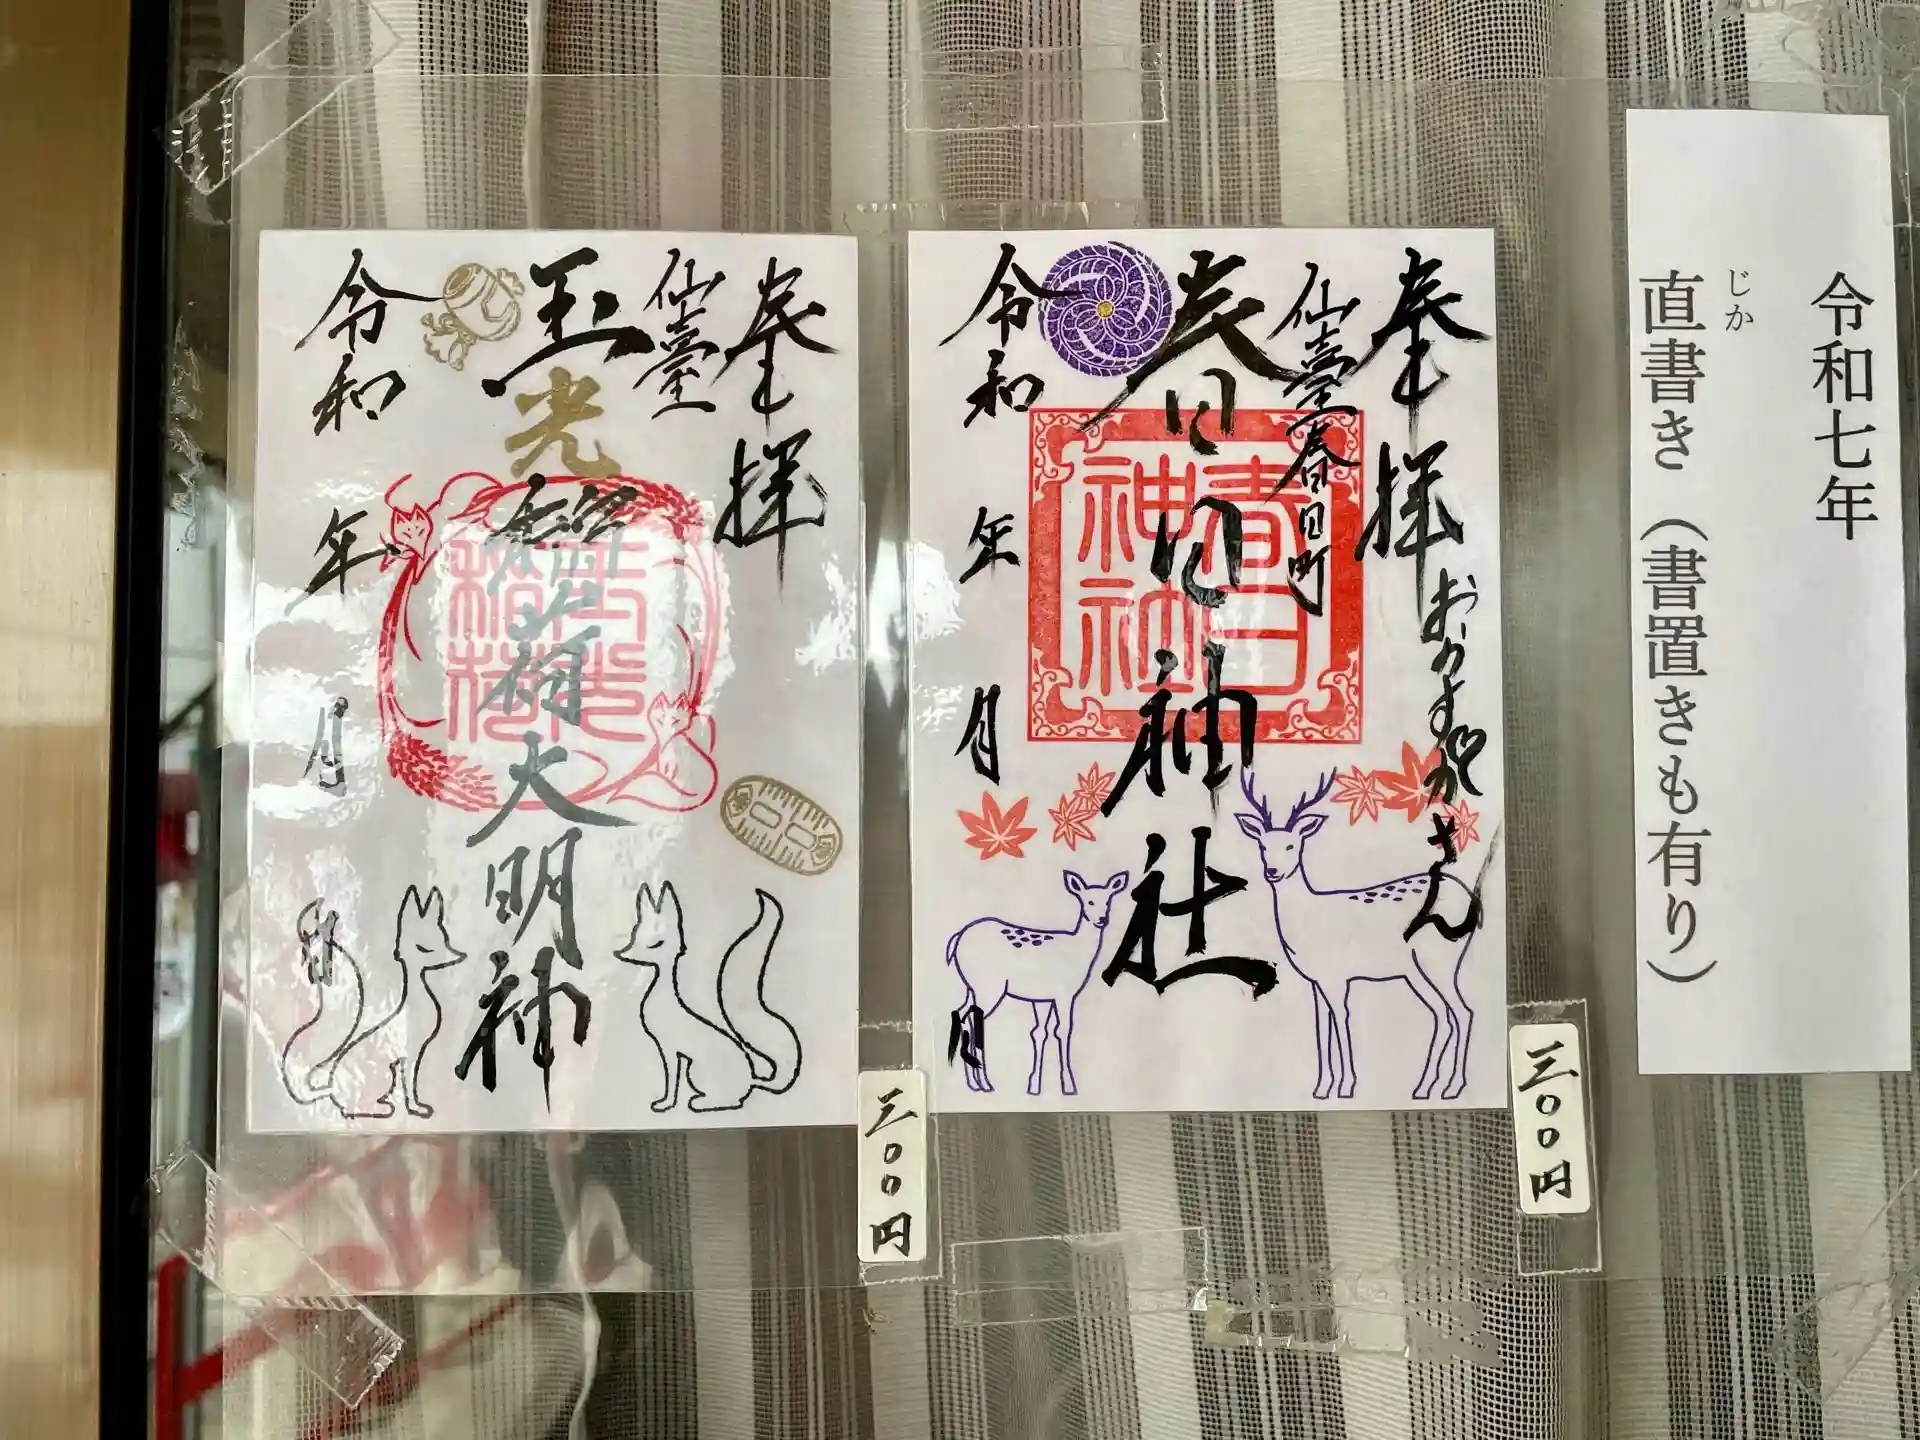 令和七年
直書き（書置きも有り）
じか
奉拝
おかすがさん
仙臺春日町
春日神社
春日
神社
令和 年 月 日
三〇〇円
奉拝
仙臺
玉光稲荷大明神
玉光
稲荷
令和 年 月 日
三〇〇円